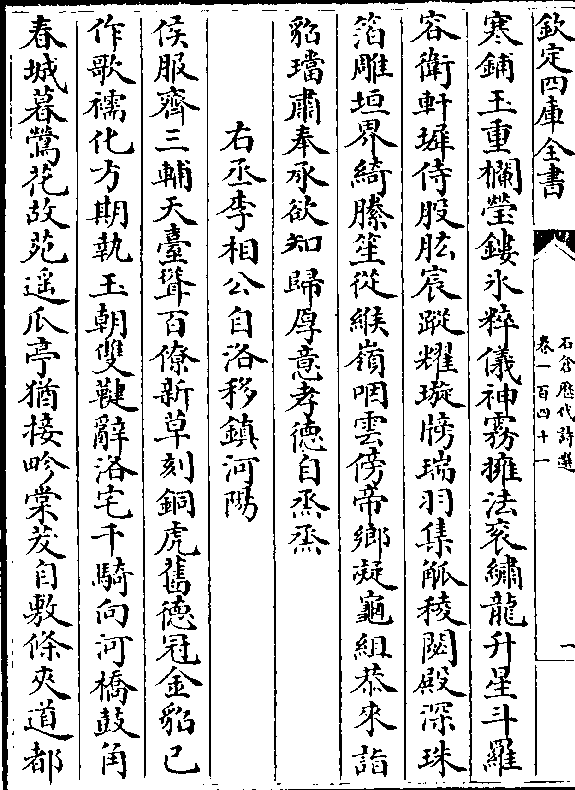 欽定四庫全書
石倉歷代詩選
卷一百四十一
一
寒鋪玉重欄瑩鏤氷粹儀神霧擁法衮繡龍升星斗羅
容衛軒墀侍股肱宸蹤耀璇牓瑞羽集觚稜閟殿深珠
箔雕垣界綺縢笙從緱嶺咽雲傍帝鄉凝龜組恭來詣
貂璫肅奉承欲知歸厚意孝德自烝烝
右丞李相公自洛移鎮河陽
侯服齊三輔天臺聳百僚新草刻銅虎舊德冠金貂已
作歌襦化方期執玉朝雙鞬辭洛宅千騎向河橋鼓角
春城暮鶯花故苑遥瓜亭猶接畛棠茇自敷條夾道都